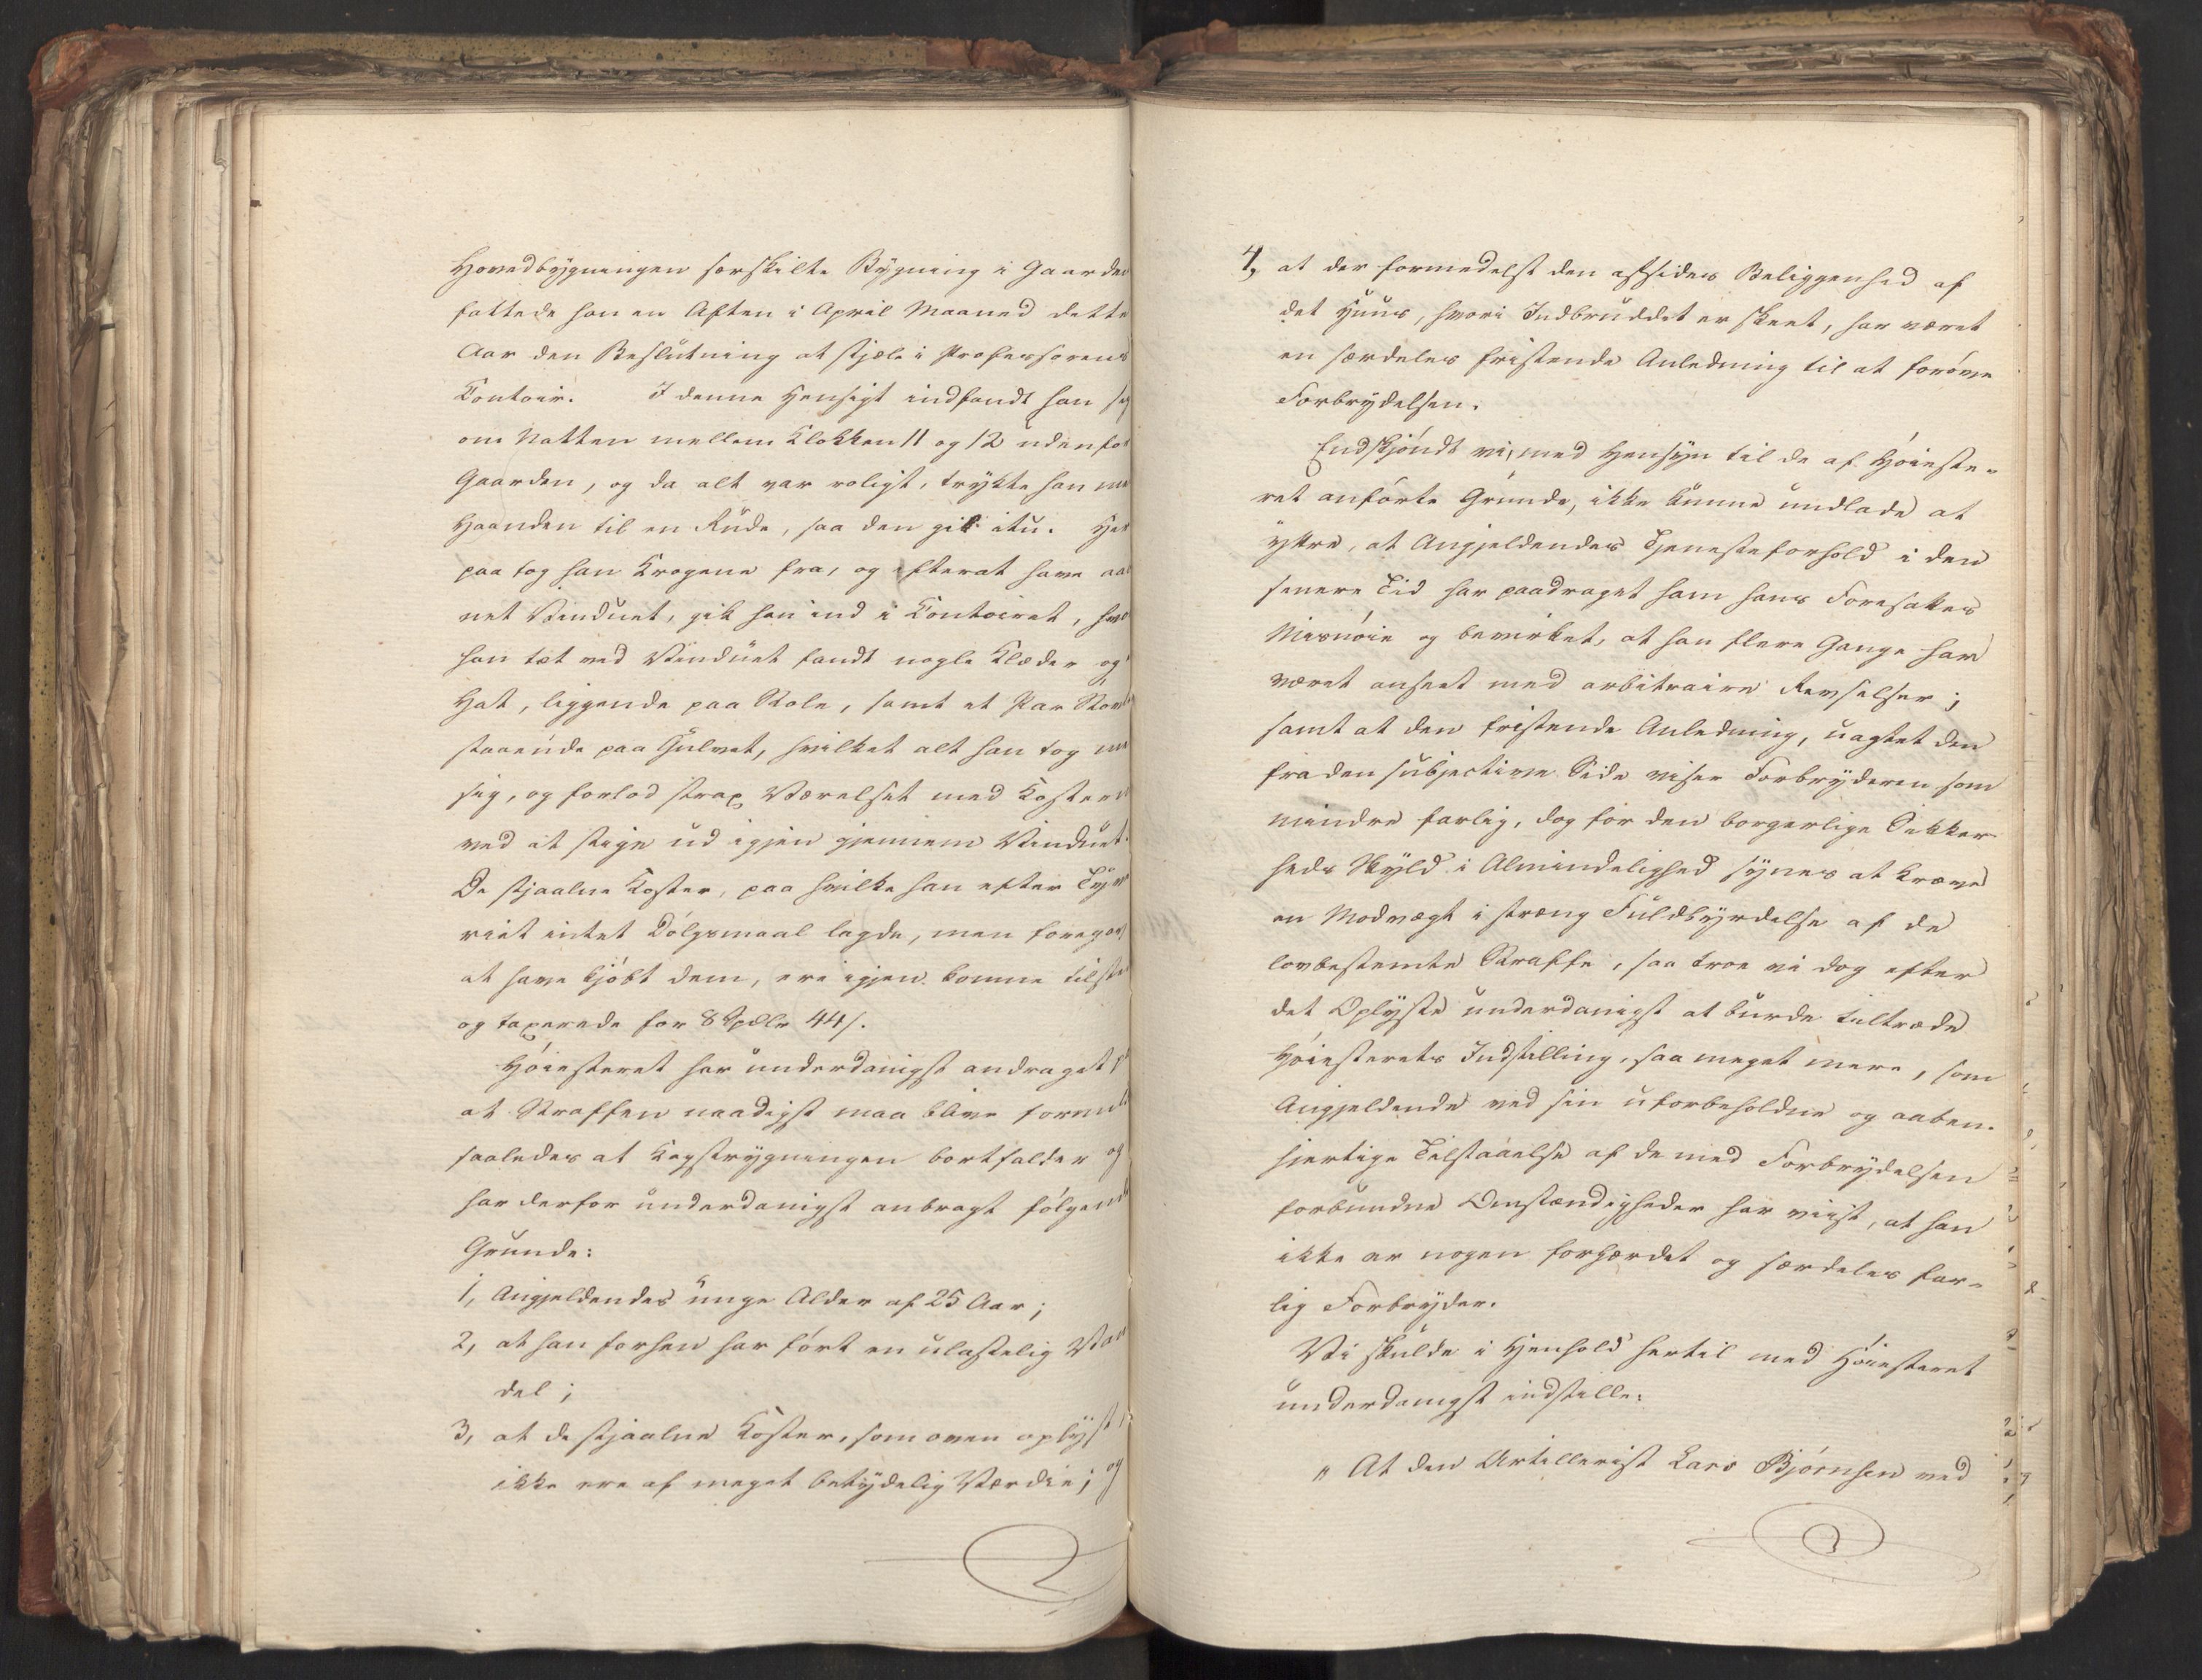 Hovedbygningen forskilte Bygning i Gaarden
fattede han en Aften i April Maaned dette
Aar den Beslutning at stjæle i Professorens
Contoir. I denne Hensigt indfandt han sig
om Natten mellem Klokken 11 og 12 udenfor
Gaarden, og da alt var roligt, trykte han me
Haanden til en Rude, saa den gik itu. Her
paa tog han Krogene fra, og efterat have aab
net Vinduet, gik han ind i Contoiret, hvor
han tæt ved Vinduet fandt nogle Klæder og
Hat, liggende paa Stole, samt et Par Støvle
staaende paa Gulvet, hvilket alt han tog me
sig, og forlod strax Værelset med Kosterne
ved at stige ud igjen gjennem Vinduet.
De stjaalne Koster, paa hvilke han efter Tyve
riet intet Dølgsmaal lagde, men foregav
at have kjøbt dem, ere igjen komne tilste
og taxerede for 8 Spdlr 44 s.
Høiesteret har underdanigst andraget p
at Straffen naadigst maa blive formil
saaledes at Kagstrygningen bortfalder og
har derfor underdanigst anbragt følgende
Grunde:
1, Angjeldendes unge Alder af 25 Aar;
2, at han forhen har ført en ulastelig Van
del;
3, at de stjaalne Koster, som oven oplyst,
ikke ere af meget betydelig Værdie; og
4, at der formedelst den afsides Beliggenhed af
det Huus, hvori Indbruddet er skeet, har været
en særdeles fristende Anledning til at forøve
Forbrydelsen.
Endskjøndt vi, med Hensyn til de af Høieste-
ret anførte Grunde, ikke kunne undlade at
yttre, at Angjeldendes Tjenesteforhold i den
senere Tid har paadraget ham hans Foresattes
Misnøie og bevirket, at han flere Gange har
været anseet med arbitraire Revselser;
samt at den fristende Anledning, uagtet den
fra den subjective Side viser Forbryderen som
mindre farlig, dog for den borgerlige Sikker
heds Skyld i Almindelighed synes at kræve
en Modvægt i streng Fuldbyrdelse af de
lovbestemte Straffe, saa troe vi dog efter
det Oplyste underdanigst at burde tiltræde
Høiesterets Indstilling, saa meget mere, som
Angjeldende ved sin uforbeholdne og aaben-
hjertige Tilstaaelse af de med Forbrydelsen
forbundne Omstændigheder har viist, at han
ikke er nogen forhærdet og særdeles far-
lig Forbryder.
Vi skulde i Henhold hertil med Høiesteret
underdanigst indstille:
" At den Artillerist Lars Bjørnsen ved